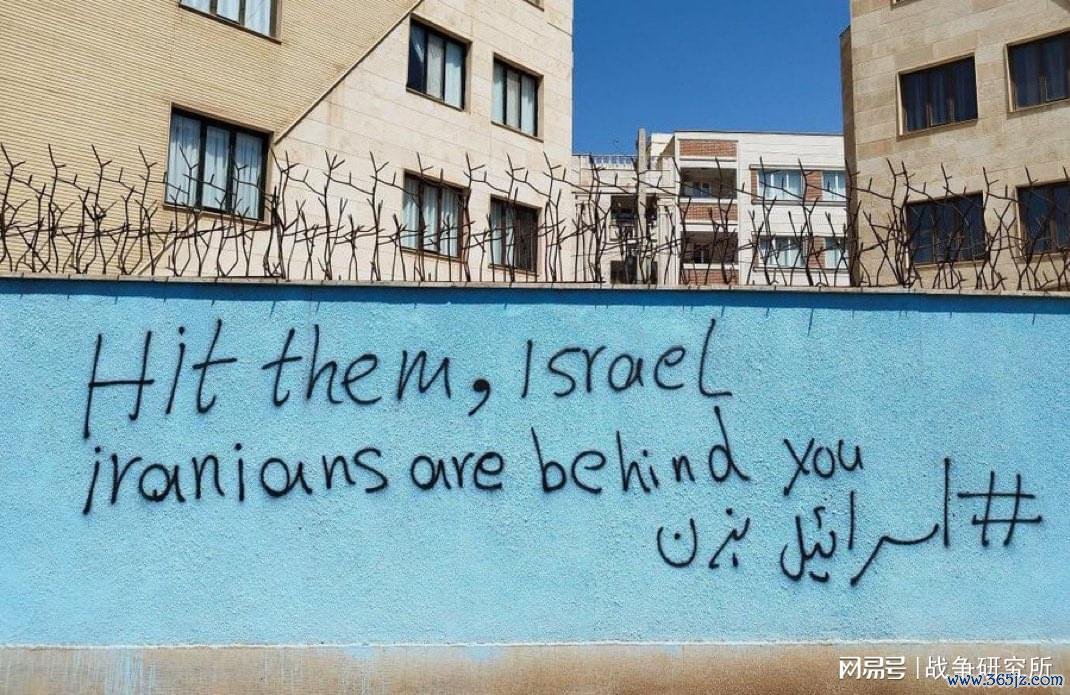 Hit them, Israel
iranians are behind you
#اسرائیل بزن
网易号 | 战争研究所
www.365jz.com